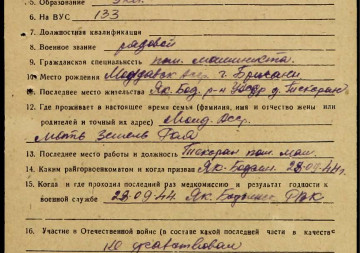 5. Образование
6. На ВУС 133
7. Должностная квалификация
8. Военное звание рядовой
9. Гражданская специальность пом. машиниста.
10. Место рождения г. Бричаны
11. Последнее место жительства Як-Бод. р-н
12. Где проживает в настоящее время семья (фамилия, имя и отчество жены или
родителей и точный их адрес) Молд. ССР.
мать
13. Последнее место работы и должность пом. маш.
14. Каким райгорвоенкоматом и когда призван 23.09.44 г.
15. Когда и где проходил последний раз медкомиссию и результат годности к
военной службе 23.09.44. РВК
16. Участие в Отечественной войне (в составе какой последней части в качестве
не участвовал